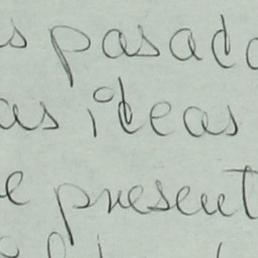 s pasado
as ideas
e present